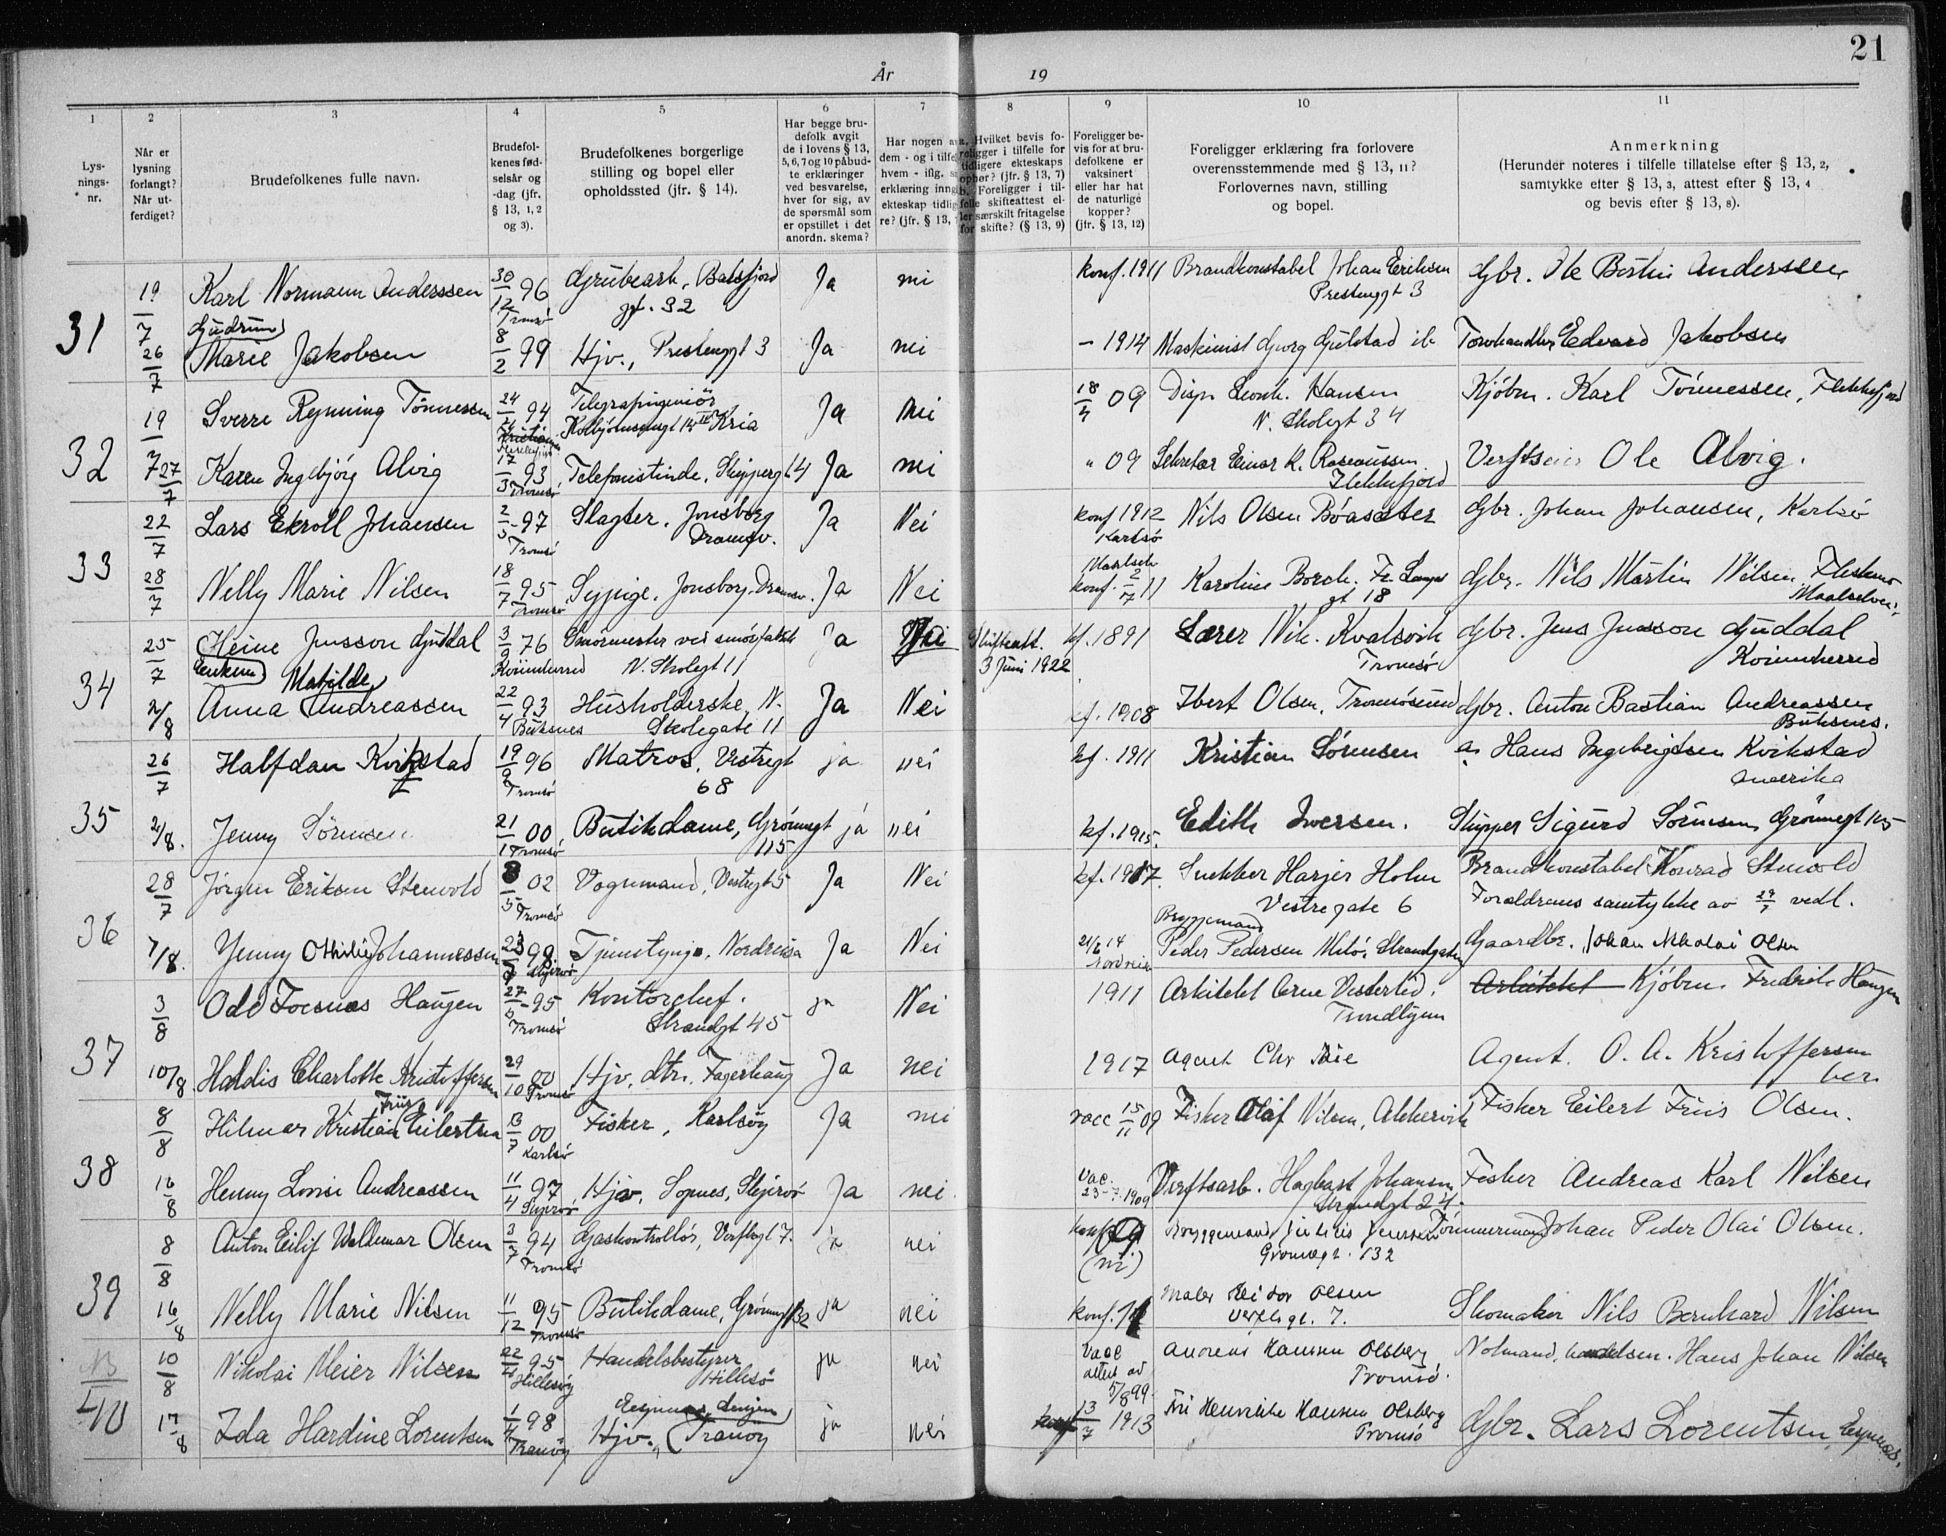 21
År 19
1 2 3 4 5 6 7 8 9 10 11
Lys-
nings-
nr.
Når er
lysning
forlangt?
Når ut-
ferdiget?
Brudefolkenes fulle navn.
Brudefol-
kenes fød-
selsår og
-dag (jfr.
§ 13, 1, 2
og 3).
Brudefolkenes borgerlige
stilling og bopel eller
opholdssted (jfr. § 14).
Har begge bru-
defolk avgit
de i lovens § 13,
5, 6, 7 og 10 påbud-
te erklæringer
ved besvarelse,
hver for sig, av
de spørsmål som
er opstillet i det
anordn. skema?
Har nogen av
dem - og i tilfel
hvem - iflg.
erklæring inng
ekteskap tidlig
re? (jfr. § 13,
a. Hvilket bevis fo-
religger i tilfelle for
tidligere ekteskaps
ophør? (jfr. § 13, 7)
b. Foreligger i til-
felle skifteattest el-
ler særskilt fritagelse
for skifte? (§ 13, 9)
Foreligger be-
vis for at bru-
defolkene er
vaksinert
eller har hat
de naturlige
kopper?
(jfr. § 13, 12)
Foreligger erklæring fra forlovere
overensstemmende med § 13, 11?
Forlovernes navn, stilling
og bopel.
Anmerkning
(Herunder noteres i tilfelle tillatelse efter § 13, 2,
samtykke efter § 13, 3, attest efter § 13, 4
og bevis efter § 13, 8).
31 19/7 Karl Normann Anderssen 30/12 96 Tromsø Grubearb., Balsfjord gt. 32 Ja nei konf. 1911 Brandkonstabel Johan Eriksen Prestenggt 3 Gbr. Ole Bertin Anderssen
26/7 Gudrun Marie Jakobsen 8/2 99 Hjv., Prestenggt 3 Ja nei - 1914 Maskinist Georg Gulstad ib Torvhandler Edvard Jakobsen
32 19/7 Sverre Rynning Tønnessen 24/ 94 Telegrafingeniør Kria Ja nei 18/4 09 Disp. Leonh. Hansen N. Skolegt 34 Kjøbm. Karl Tønnessen, Flekkefjord
27/7 Karen Ingebjørg Alvig 17/3 93 Tromsø Telefonistinde, Skippergt 14 Ja nei " 09 Sekretær Einar R. Rasmussen Flekkefjord Ole Alvig.
33 22/7 Lars Ekroll Johansen 2/5 97 Tromsø Slagter, Jonsborg Dramsv. Ja Nei konf 1912 Karlsø Nils Olsen Bóasæter Gbr. Johan Johansen, Karlsø
28/7 Nelly Marie Nilsen 18/7 95 Tromsø Sypige, Jonsborg, Dramsv. Ja Nei konf. 2/7 11 Karoline Borch. Fr. Langes gt 18 Gbr. Nils Martin Nilsen Maalselven
34 25/7 Heine Jensson Guddal Enkem. 3/9 76 Kvinnherred N. Skolegt 11 Ja Nei Skifteatt. 3 Juni 1922 kf. 1891 Lærer Nik. Kvalsvik Tromsø Gbr. Jens Jensson Guddal Kvinnherred
2/8 Anna Matilde Andreassen 22/4 93 Buksnes Husholderske, N. Skolegate 11 Ja Nei kf. 1908 Ibert Olsen, Tromsøsund Gbr. Anton Bastian Andreassen Buksnes.
35 26/7 Halfdan Kvikstad 19/9 96 Tromsø Matros, Vestregt 68 ja nei kf. 1911 Kristian Sørensen Hans Ingebrigtsen Kvikstad Amerika
2/8. Jenny Sørensen 21/1 00 Tromsø Butikdame, Grønnegt 115 ja nei kf. 1915. Edith Iversen. Skipper Sigurd Sørensen, Grønnegt 115
36 28/7 Jørgen Eriksen Stenvold 8/5 02 Tromsø Vognmand, Vestregt 5 Ja Nei kf. 1917. Snekker Harjer Holm Vestregate 6 Brandkonstabel Konrad Stenvold Forældrenes samtykke av 29/7 vedl.
7/8. Jenny Othilie Johannessen 98 Skjervø Tjenestepige, Nordreisa Ja Nei 21/6 14 Nordreisa Bryggemand Peder Pedersen Strandgaten Gaardbr. Johan Nikolai Olsen
37 3/8 Odd Foesnæs Haugen 27/5 95 Tromsø Kontorchef. Strandgt 45 ja Nei 1911 Arkitekt Arne Vesterlid, Trondhjem Arkitekt Kjøbm. Fredrik Haugen
10/8 Haldis Charlotte Kristoffersen 29/10 00 Tromsø Hjv. dtr. Fagerhaug Ja nei 1917 Agent Chr. Agent. O. A. Kristoffersen her
38 8/8 Hilmar Kristian Friis Eilertsen 13/7 00 Karlsø Fisker, Karlsøy Ja nei vacc 15/11 09 Fisker Olaf Nilsen, Akkervik Fisker Eilert Friis Olsen.
16/8 Henny Lovise Andreassen 11/4 97 Skjervø Hjv. Sopnes, Skjervø Ja nei. Vac. 23-7.1909 Verftsarb. Hagbart Johansen Strandgt 24. Fisker Andreas Karl Nilsen
39 8/8 Anton Eilif Waldemar Olsen 3/7 94 Tromsø Gaskontrollør, Verftsgt 7. ja nei konf 09 Bryggemand Julius Jensen Grønnegt. 132 Tömmermand Johan Peder Olai Olsen.
16/8 Nelly Marie Nilsen 11/12 95 Tromsø Butikdame, Grønnegt 132 ja nei konf. 11 Maler Reidar Olsen Verftsgt. 7. Skomaker Nils Bernhard Nilsen
40 10/8 Nikolai Meier Nilsen 22/4 95 Hillesøy Handelsbestyrer Hillesø ja nei Vacc attest av 5/8 99. Andreas Hansen Olsberg Tromsø. Notmand, Hans Johan Nilsen
17/8 Ida Hardine Lorentsen 1/4 98 Tranøy Hjv. Tranøy ja nei konf 13/7 1913 Fru Henrikke Hansen Olsberg Tromsø Gbr. Lars Lorentsen